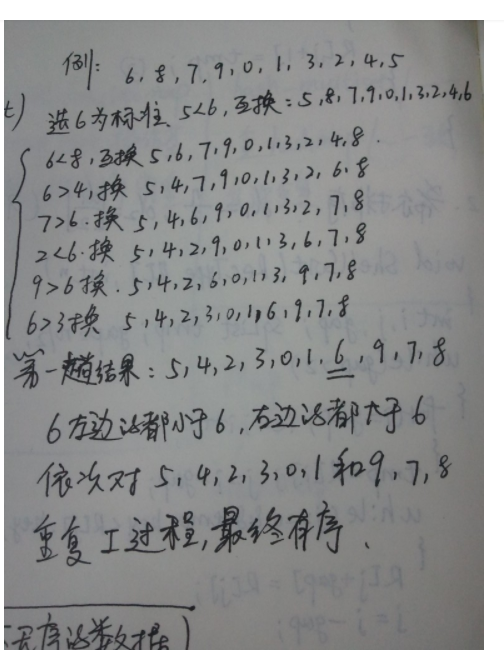 例: 6, 8, 7, 9, 0, 1, 3, 2, 4, 5
选6为标准. 5<6, 互换: 5,8,7,9,0,1,3,2,4,6
6<8, 互换 5,6,7,9,0,1,3,2,4,8.
6>4, 换 5,4,7,9,0,1,3,2,6,8
7>6. 换 5,4,6,9,0,1,3,2,7,8
2<6. 换 5,4,2,9,0,1,3,6,7,8
9>6 换. 5,4,2,6,0,1,3,9,7,8
6>3 换 5,4,2,3,0,1,6,9,7,8
第一趟结果: 5,4,2,3,0,1,6,9,7,8
6左边的都小于6,右边的都大于6
依次对 5,4,2,3,0,1和9,7,8
重复工过程,最终有序.
序的数据)